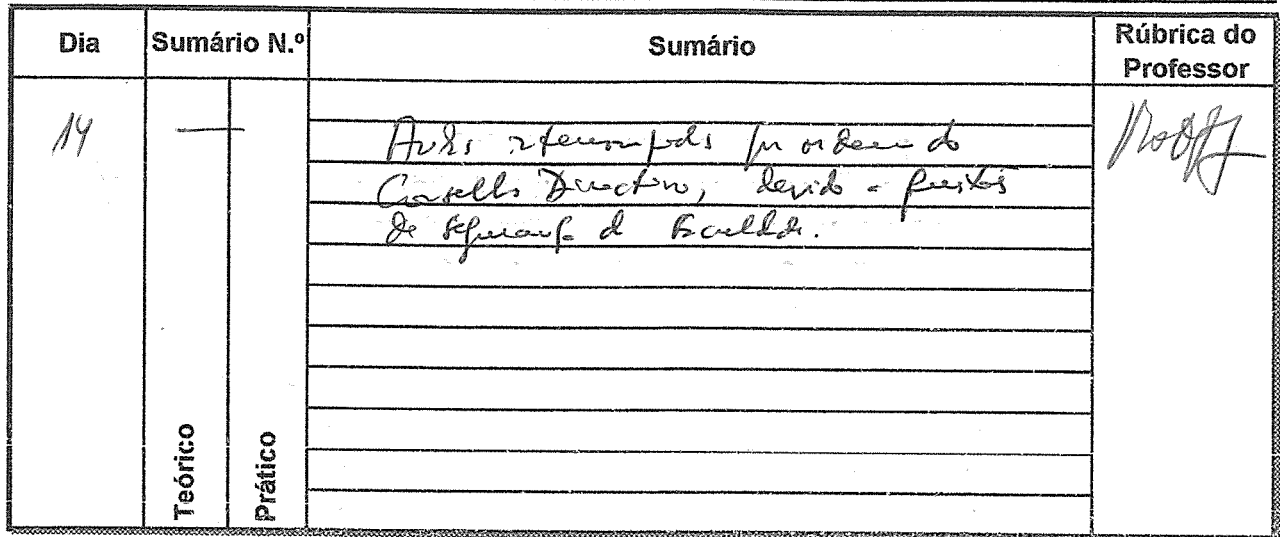 Dia Sumário N.º Sumário Rúbrica do Professor
14 — Aulas interrompidas por ordem do
Conselho Directivo, devido a questões
de segurança da Faculdade.
Teórico
Prático